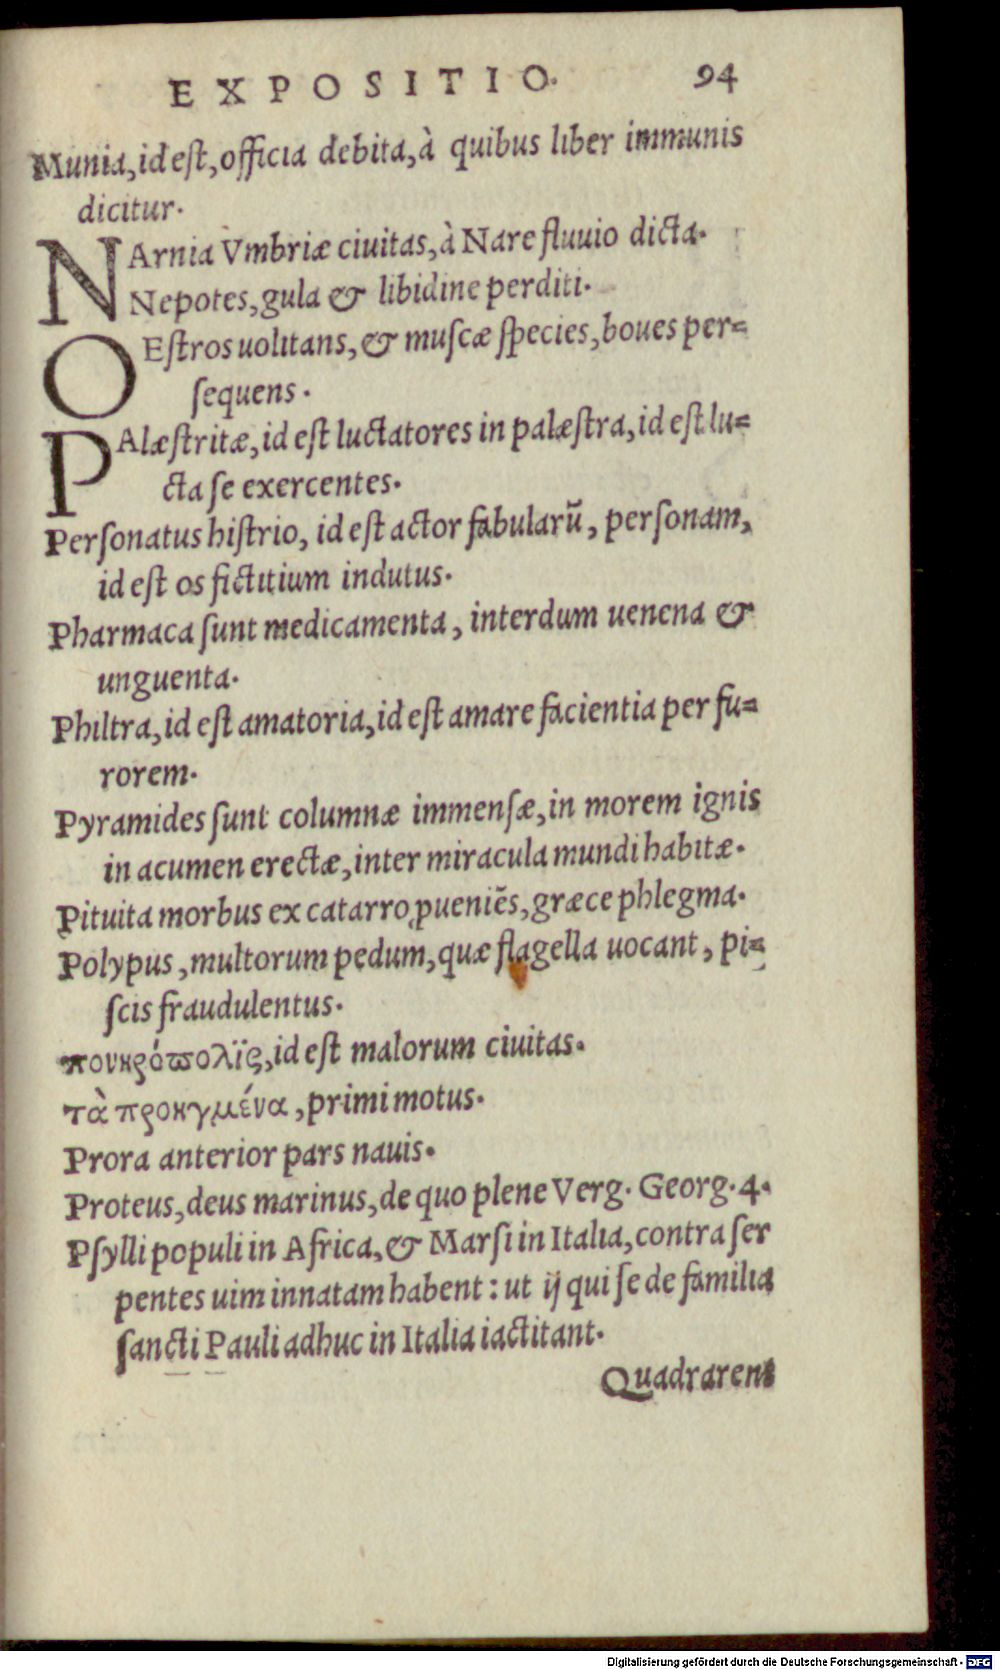 EXPOSITIO. 94
Munia, id eſt, officia debita, à quibus liber immunis
dicitur.
NArnia Vmbriæ ciuitas, à Nare fluuio dicta.
Nepotes, gula & libidine perditi.
OEſtros uolitans, & muſcæ ſpecies, boues per=
ſequens.
PAlæſtritæ, id eſt luctatores in palæſtra, id eſt lu=
cta ſe exercentes.
Perſonatus hiſtrio, id eſt actor fabularū, perſonam,
id eſt os fictitium indutus.
Pharmaca ſunt medicamenta, interdum uenena &
unguenta.
Philtra, id eſt amatoria, id eſt amare facientia per fu=
rorem.
Pyramides ſunt columnæ immenſæ, in morem ignis
in acumen erectæ, inter miracula mundi habitæ.
Pituita morbus ex catarro ꝓueniẽs, græce phlegma.
Polypus, multorum pedum, quæ flagella uocant, pi=
ſcis fraudulentus.
πονηρόπολϊς, id eſt malorum ciuitas.
τὰ προηγμένα, primi motus.
Prora anterior pars nauis.
Proteus, deus marinus, de quo plene Verg. Georg. 4.
Pſylli populi in Africa, & Marſi in Italia, contra ſer
pentes uim innatam habent: ut ij qui ſe de familia
ſancti Pauli adhuc in Italia iactitant.
Quadrarent
Digitalisierung gefördert durch die Deutsche Forschungsgemeinschaft - DFG